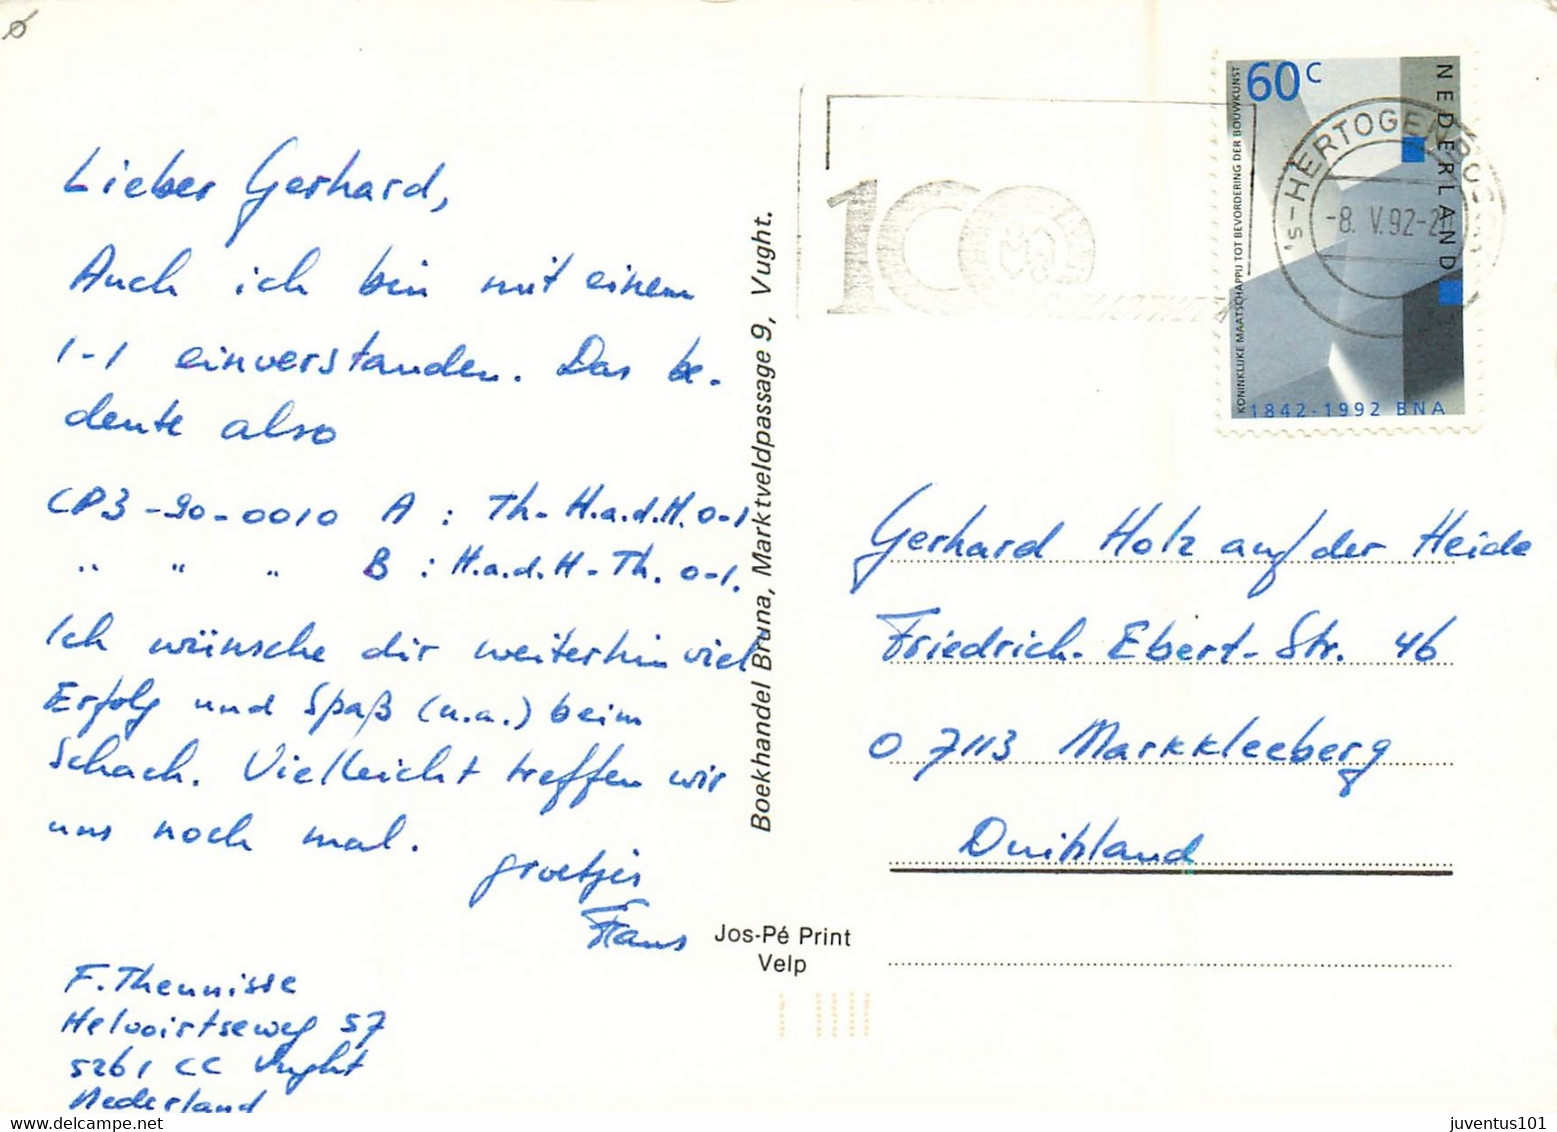 Lieber Gerhard,
Auch ich bin mit einem
1-1 einverstanden. Das be-
deute also
CP3-90-0010 A : Th-H.a.d.H. 0-1
" " " B : H.a.d.H-Th. 0-1.
Ich wünsche dir weiterhin viel
Erfolg und Spaß (u.a.) beim
Schach. Vielleicht treffen wir
uns noch mal.
groetjes
Frans
F. Theunisse
Helvoirtseweg 57
5261 CC Vught
Nederland
Boekhandel Bruna, Marktveldpassage 9, Vught.
Jos-Pé Print
Velp
100
60c
NEDERLAND
KONINKLIJKE MAATSCHAPPIJ TOT BEVORDERING DER BOUWKUNST
1842-1992 BNA
's-HERTOGENBOSCH
-8.V.92-20
Gerhard Holz auf der Heide
Friedrich-Ebert-Str. 46
O 7113 Markkleeberg
Duitsland
juventus101